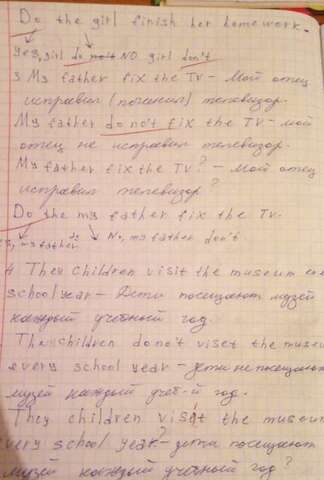 Do the girl finish her homework.
Yes, girl do not NO girl don't
3 My father fix the TV - Мой отец
исправил (починил) телевизор.
My father do not fix the TV - мой
отец не исправил телевизор.
My father fix the TV? - Мой отец
исправил телевизор?
Do the my father fix the TV.
my father do No, my father don't
4 They children visit the museum
school year - Дети посещают музей
каждый учебный год.
children do not viset the museum
every school year - дети не посещают
музей каждый учеб-й год.
They children visit the museum
very school year? - дети посещают
музей каждый учебный год?